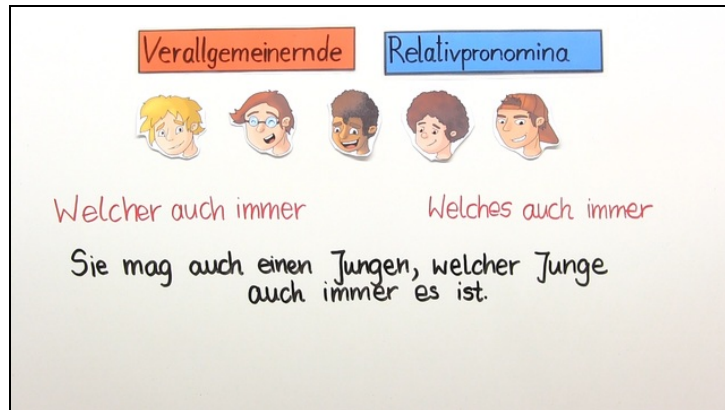 Verallgemeinernde Relativpronomina
Welcher auch immer Welches auch immer
Sie mag auch einen Jungen, welcher Junge
auch immer es ist.